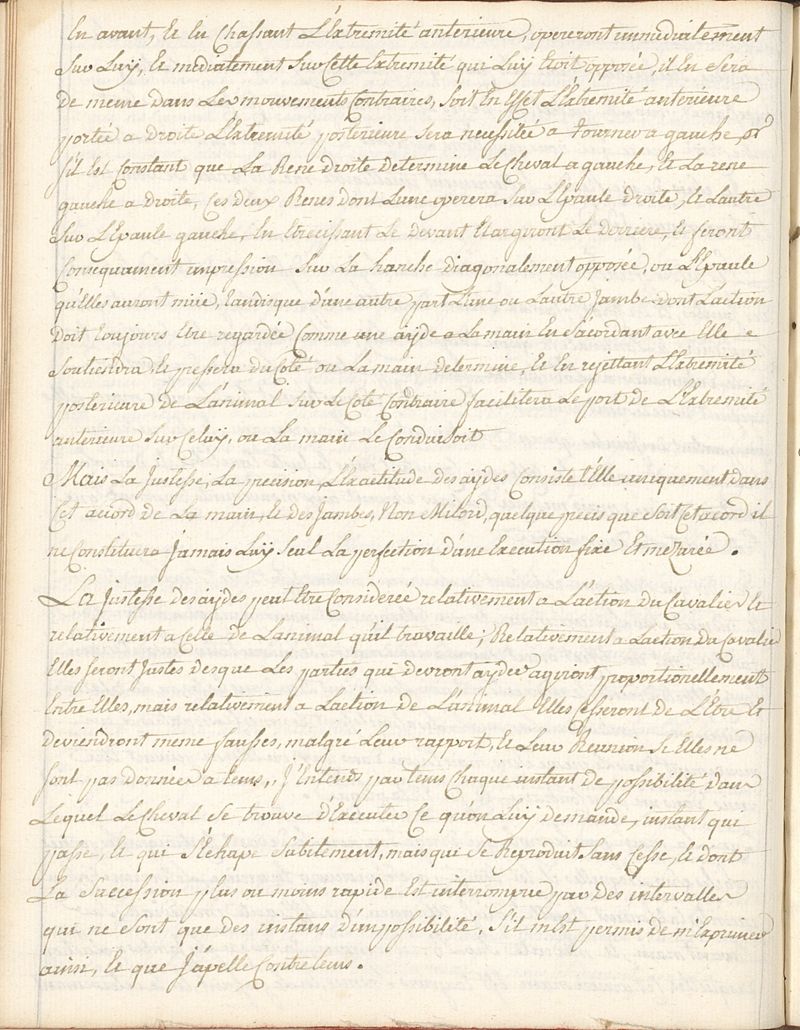 En avant, et en Chassant L'Extremité antérieure, opereront immediatement
Sur Luy, et mediatement Sur Cette Extremité qui Luy Etoit opposée, il En Sera
De meme Dans Les mouvements Contraires, Soit En Effet L'Extremité anterieure
portée a Droite L'Extremité posterieure Sera necessitée a Tourner a gauche, or
s'il Est Constant que La Rene Droite Determine Le Cheval a gauche, Et La rene
gauche a Droite, Ces Deux Renes Dont L'une operera Sur L'Epaule Droite, et L'autre
Sur L'Epaule gauche, En Etrecissant Le Devant Elargiront Le Derriere, et feront
Consequament impression Sur La hanche Diagonalement opposée, ou L'Epaule
qu'Elles auront muë, tandisque D'une autre part L'une ou L'autre Jambe Dont L'action
Doit toujours Etre regardée Comme une ayde a La main En S'acordant avec Elle
Soutiendra et pessera Du Coté ou La main Determine, et En rejettant L'Extremité
posterieure de L'animal Sur Le Coté Contraire facilitera Le port de L'Extremité
anterieure Sur Celuy, ou La main Le Conduisoit
Mais La Justesse, La precision, L'Exactitude Des aydes Consiste t'Elle uniquement dans
Cet accord de La main, et des Jambes, Non Milord, quelque precis que Soit Cet acord il
ne Constituera Jamais Luy Seul La perfection d'une Execution fixe Et mezurée.
La Justesse Des aydes peut Etre Considereé relativement a L'action Du Cavalier Et
relativement a Celle de L'animal qu'il travaille; Relativement a L'action Du Cavalier
Elles Seront Justes Des que Les parties qui Devront ayder agiront proportionellement
Entre Elles, mais relativement a L'action de L'animal Elles Cesseront de L'Etre Et
Deviendront meme fausses, malgré Leur rapport, et Leur Reunion Si Elles ne
Sont pas Données a tems, J'Entends par tems Chaque instant de possibilité dans
Lequel Le Cheval Se trouve D'Executer Ce qu'on Luy Demande, instant qui
passe, et qui S'Echape Subitement, mais qui Se Reproduit Sans Cesse, et dont
La Succession plus ou moins rapide Est interrompue par Des intervalles
qui ne Sont que des instans D'impossibilité, S'il m'Est permis de m'Exprimer
ainsi, et que J'apelle Contretems.